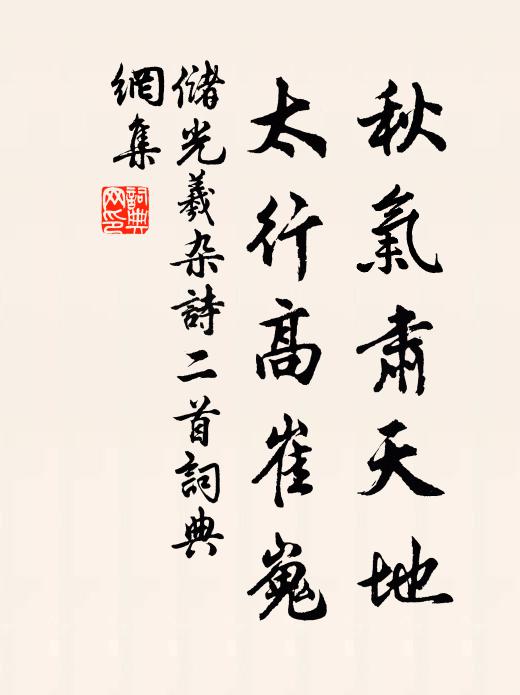 秋氣肅天地
太行高崔嵬
儲光羲雜詩二首詞典
網集
詞典
网印